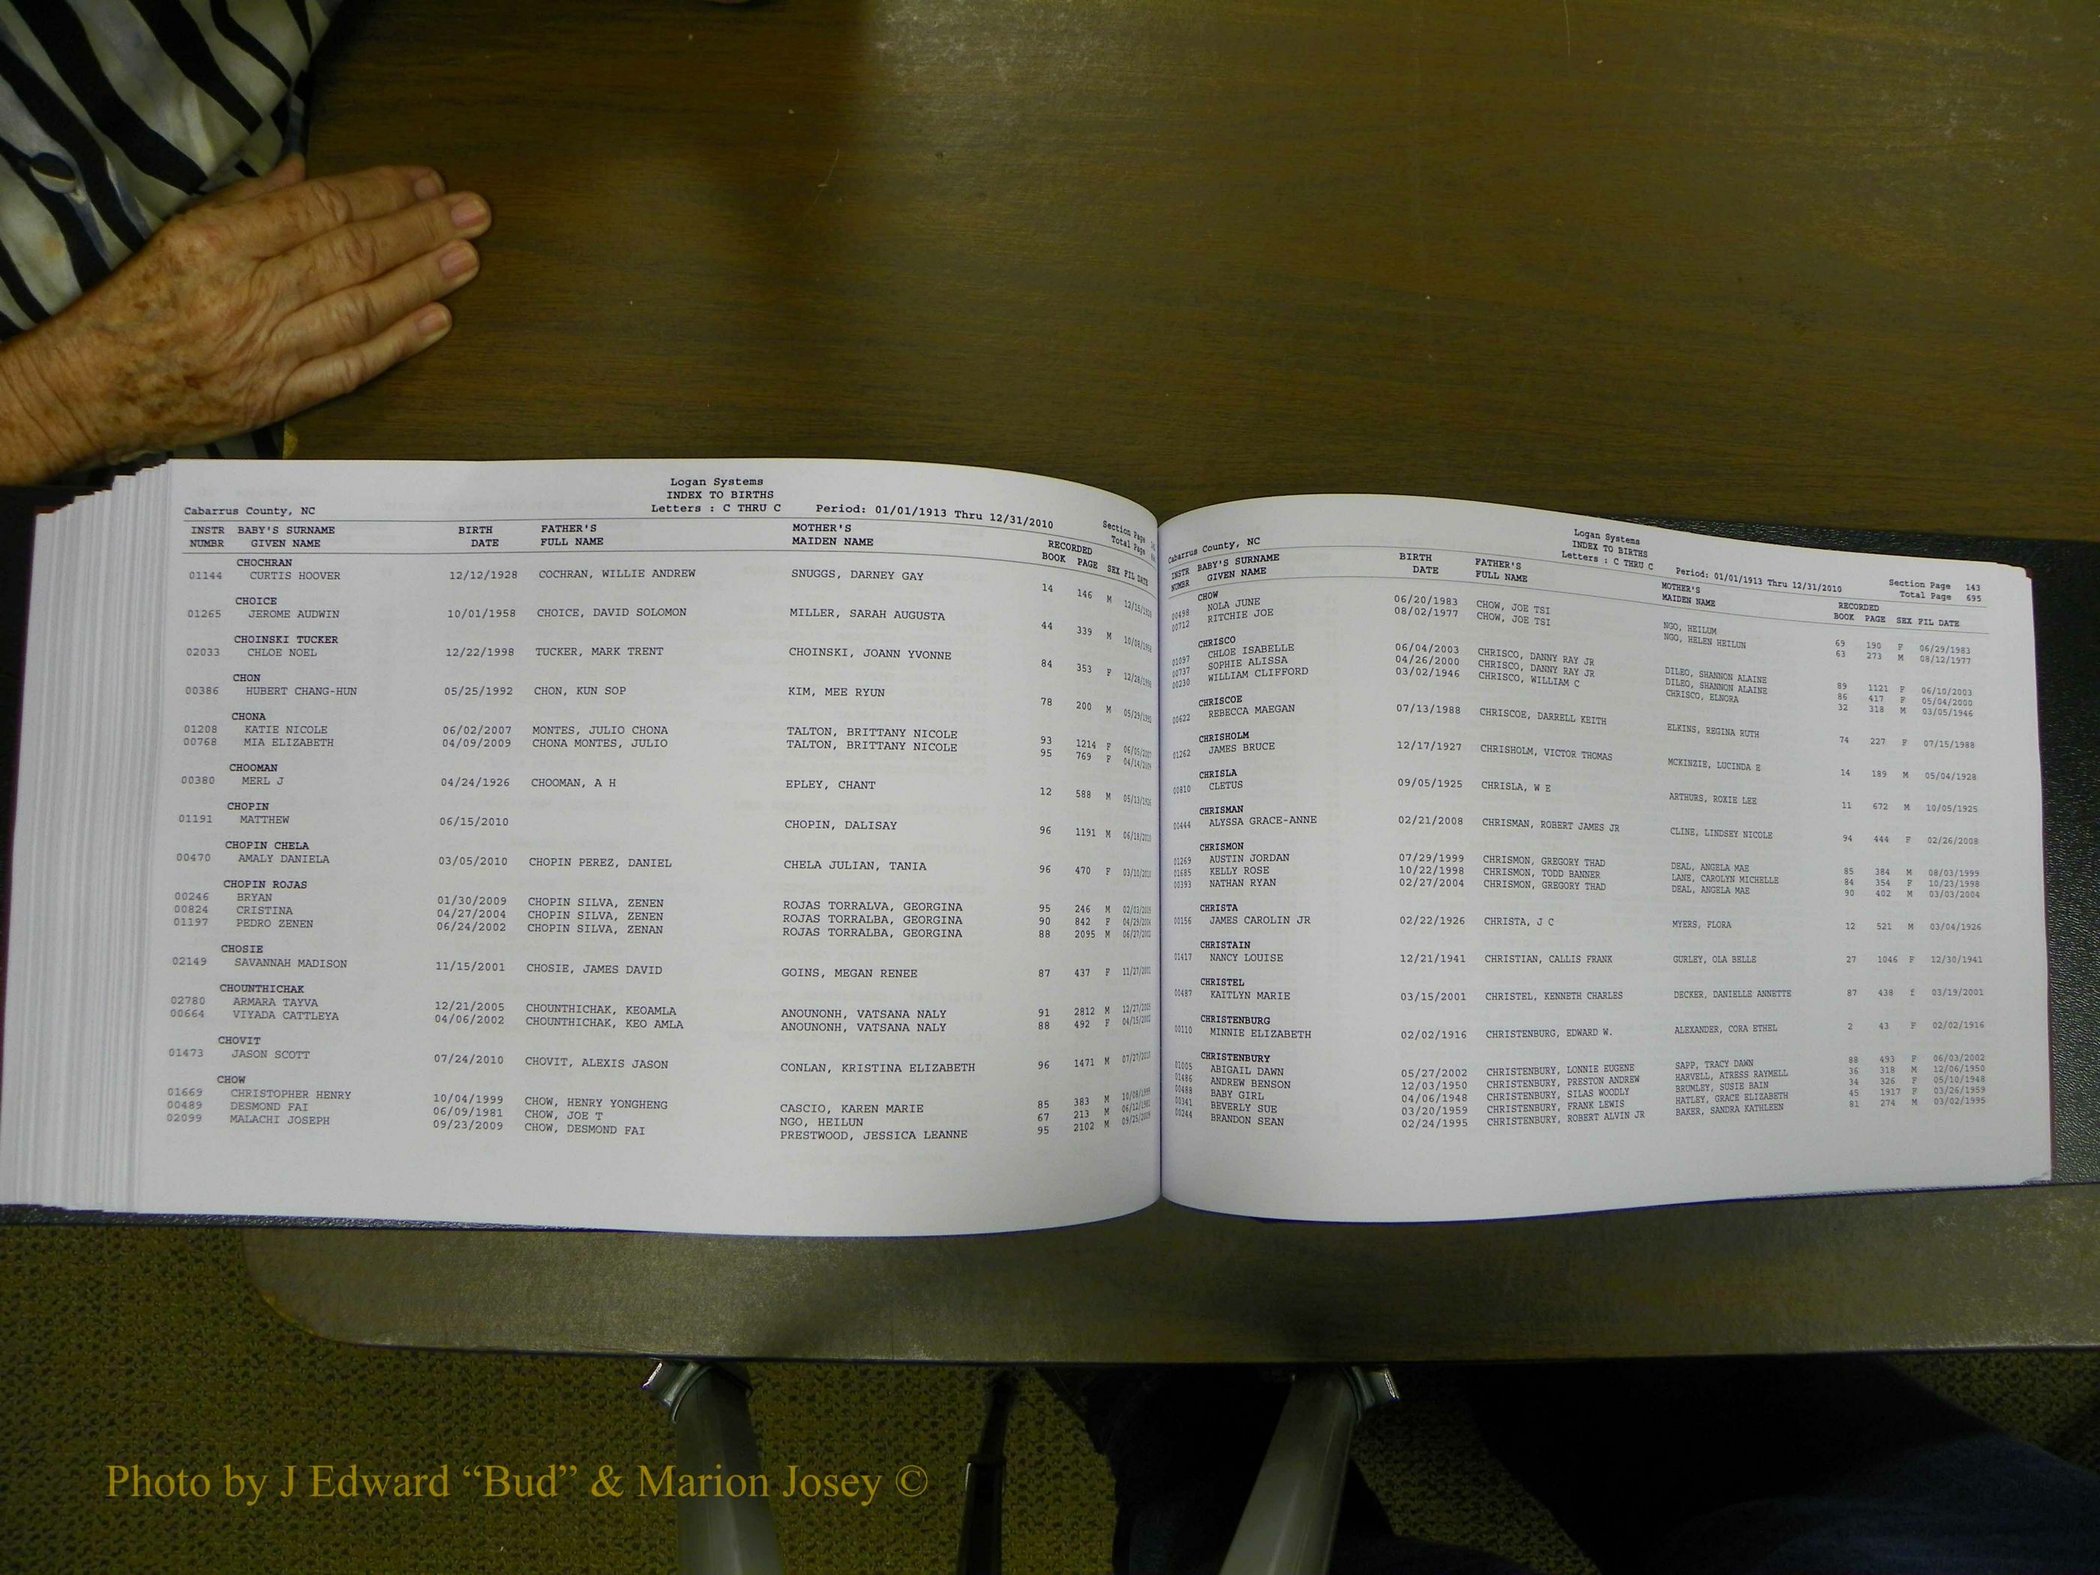 Logan Systems
INDEX TO BIRTHS
Cabarrus County, NC Letters : C THRU C Period: 01/01/1913 Thru 12/31/2010 Section Page
Total Page
INSTR BABY'S SURNAME BIRTH FATHER'S MOTHER'S RECORDED
NUMBR GIVEN NAME DATE FULL NAME MAIDEN NAME BOOK PAGE SEX FIL DATE
CHOCHRAN
01144 CURTIS HOOVER 12/12/1928 COCHRAN, WILLIE ANDREW SNUGGS, DARNEY GAY 14 146 M
CHOICE
01265 JEROME AUDWIN 10/01/1958 CHOICE, DAVID SOLOMON MILLER, SARAH AUGUSTA 44 339 M
CHOINSKI TUCKER
02033 CHLOE NOEL 12/22/1998 TUCKER, MARK TRENT CHOINSKI, JOANN YVONNE 84 353 F
CHON
00386 HUBERT CHANG-HUN 05/25/1992 CHON, KUN SOP KIM, MEE RYUN 78 200 M
CHONA
01208 KATIE NICOLE 06/02/2007 MONTES, JULIO CHONA TALTON, BRITTANY NICOLE 93 1214 F
00768 MIA ELIZABETH 04/09/2009 CHONA MONTES, JULIO TALTON, BRITTANY NICOLE 95 769 F
CHOOMAN
00380 MERL J 04/24/1926 CHOOMAN, A H EPLEY, CHANT 12 588 M
CHOPIN
01191 MATTHEW 06/15/2010 CHOPIN, DALISAY 96 1191 M
CHOPIN CHELA
00470 AMALY DANIELA 03/05/2010 CHOPIN PEREZ, DANIEL CHELA JULIAN, TANIA 96 470 F
CHOPIN ROJAS
00246 BRYAN 01/30/2009 CHOPIN SILVA, ZENEN ROJAS TORRALVA, GEORGINA 95 246 M
00824 CRISTINA 04/27/2004 CHOPIN SILVA, ZENEN ROJAS TORRALBA, GEORGINA 90 842 F
01197 PEDRO ZENEN 06/24/2002 CHOPIN SILVA, ZENAN ROJAS TORRALBA, GEORGINA 88 2095 M
CHOSIE
02149 SAVANNAH MADISON 11/15/2001 CHOSIE, JAMES DAVID GOINS, MEGAN RENEE 87 437 F
CHOUNTHICHAK
02780 ARMARA TAYVA 12/21/2005 CHOUNTHICHAK, KEOAMLA ANOUNONH, VATSANA NALY 91 2812 M
00664 VIYADA CATTLEYA 04/06/2002 CHOUNTHICHAK, KEO AMLA ANOUNONH, VATSANA NALY 88 492 F
CHOVIT
01473 JASON SCOTT 07/24/2010 CHOVIT, ALEXIS JASON CONLAN, KRISTINA ELIZABETH 96 1471 M
CHOW
01669 CHRISTOPHER HENRY 10/04/1999 CHOW, HENRY YONGHENG CASCIO, KAREN MARIE 85 383 M
00489 DESMOND FAI 06/09/1981 CHOW, JOE T NGO, HEILUN 67 213 M
02099 MALACHI JOSEPH 09/23/2009 CHOW, DESMOND FAI PRESTWOOD, JESSICA LEANNE 95 2102 M
Logan Systems
INDEX TO BIRTHS
Cabarrus County, NC Letters : C THRU C Period: 01/01/1913 Thru 12/31/2010 Section Page 143
Total Page 695
INSTR BABY'S SURNAME BIRTH FATHER'S MOTHER'S RECORDED
NUMBR GIVEN NAME DATE FULL NAME MAIDEN NAME BOOK PAGE SEX FIL DATE
CHOW
00498 NOLA JUNE 06/20/1983 CHOW, JOE TSI NGO, HEILUM 69 190 F 06/29/1983
00712 RITCHIE JOE 08/02/1977 CHOW, JOE TSI NGO, HELEN HEILUN 63 273 M 08/12/1977
CHRISCO
01097 CHLOE ISABELLE 06/04/2003 CHRISCO, DANNY RAY JR DILEO, SHANNON ALAINE 89 1121 F 06/10/2003
00737 SOPHIE ALISSA 04/26/2000 CHRISCO, DANNY RAY JR DILEO, SHANNON ALAINE 86 417 F 05/04/2000
00230 WILLIAM CLIFFORD 03/02/1946 CHRISCO, WILLIAM C CHRISCO, ELNORA 32 318 M 03/05/1946
CHRISCOE
00622 REBECCA MAEGAN 07/13/1988 CHRISCOE, DARRELL KEITH ELKINS, REGINA RUTH 74 227 F 07/15/1988
CHRISHOLM
01262 JAMES BRUCE 12/17/1927 CHRISHOLM, VICTOR THOMAS MCKINZIE, LUCINDA E 14 189 M 05/04/1928
CHRISLA
00810 CLETUS 09/05/1925 CHRISLA, W E ARTHURS, ROXIE LEE 11 672 M 10/05/1925
CHRISMAN
00444 ALYSSA GRACE-ANNE 02/21/2008 CHRISMAN, ROBERT JAMES JR CLINE, LINDSEY NICOLE 94 444 F 02/26/2008
CHRISMON
01269 AUSTIN JORDAN 07/29/1999 CHRISMON, GREGORY THAD DEAL, ANGELA MAE 85 384 M 08/03/1999
01685 KELLY ROSE 10/22/1998 CHRISMON, TODD BANNER LANE, CAROLYN MICHELLE 84 354 F 10/23/1998
00393 NATHAN RYAN 02/27/2004 CHRISMON, GREGORY THAD DEAL, ANGELA MAE 90 402 M 03/03/2004
CHRISTA
00156 JAMES CAROLIN JR 02/22/1926 CHRISTA, J C MYERS, FLORA 12 521 M 03/04/1926
CHRISTAIN
01417 NANCY LOUISE 12/21/1941 CHRISTIAN, CALLIS FRANK GURLEY, OLA BELLE 27 1046 F 12/30/1941
CHRISTEL
00487 KAITLYN MARIE 03/15/2001 CHRISTEL, KENNETH CHARLES DECKER, DANIELLE ANNETTE 87 438 f 03/19/2001
CHRISTENBURG
00110 MINNIE ELIZABETH 02/02/1916 CHRISTENBURG, EDWARD W. ALEXANDER, CORA ETHEL 2 43 F 02/02/1916
CHRISTENBURY
01005 ABIGAIL DAWN 05/27/2002 CHRISTENBURY, LONNIE EUGENE SAPP, TRACY DAWN 88 493 F 06/03/2002
01486 ANDREW BENSON 12/03/1950 CHRISTENBURY, PRESTON ANDREW HARVELL, ATRESS RAYMELL 36 318 M 12/06/1950
00488 BABY GIRL 04/06/1948 CHRISTENBURY, SILAS WOODLY BRUMLEY, SUSIE BAIN 34 326 F 05/10/1948
00341 BEVERLY SUE 03/20/1959 CHRISTENBURY, FRANK LEWIS HATLEY, GRACE ELIZABETH 45 1937 F 03/26/1959
00244 BRANDON SEAN 02/24/1995 CHRISTENBURY, ROBERT ALVIN JR BAKER, SANDRA KATHLEEN 81 274 M 03/02/1995
Photo by J Edward “Bud” & Marion Josey ©